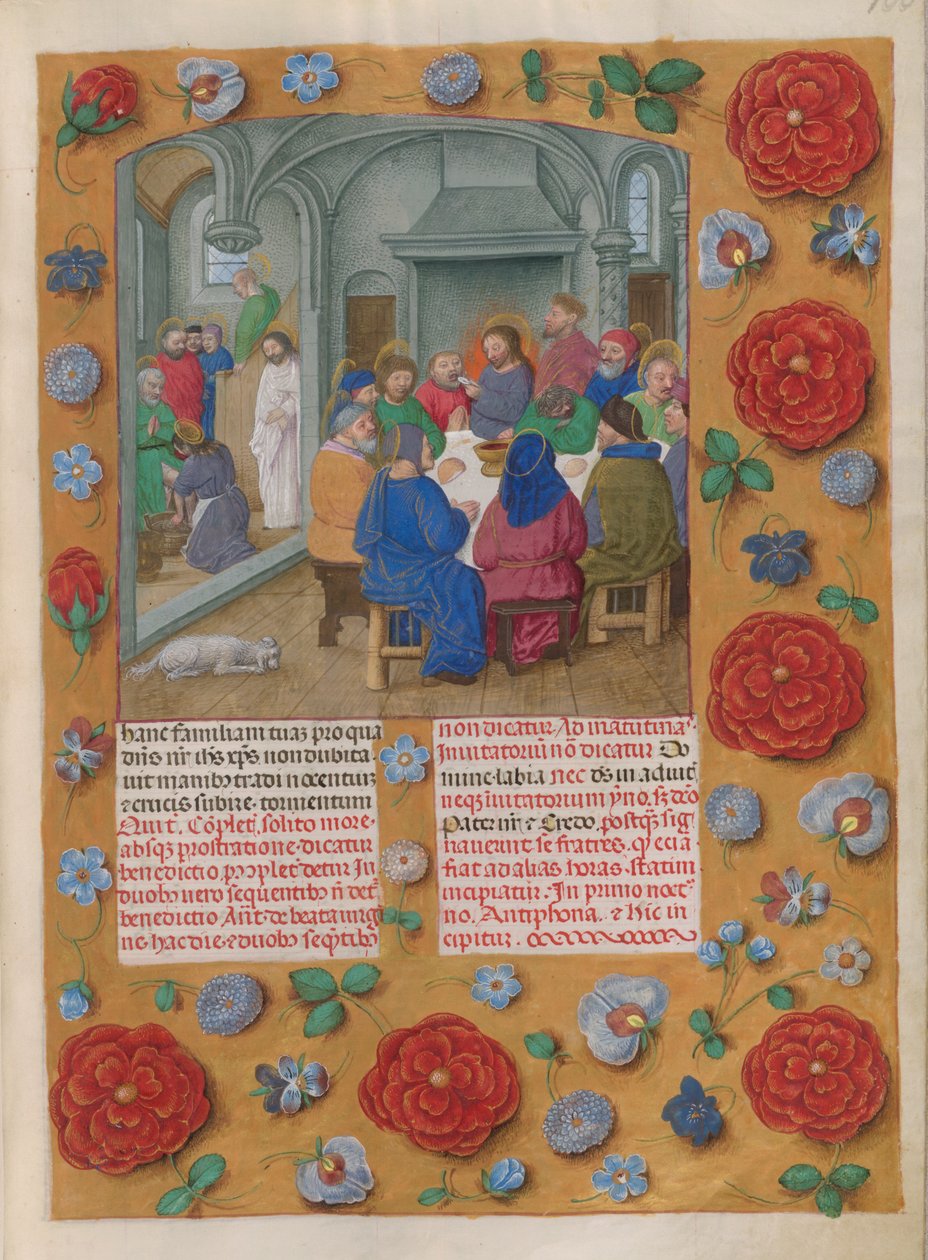 hanc familiam tuaz pro qua
dns nr ihs xps non dubita-
uit manibz tradi nocentiuz
⁊ crucis subire tormentum
Quit. Complet, solito more
absqz prostratione dicatur
benedictio,
duobz vero sequentibz
benedictio Ant de beata uirgi
ne hac die ⁊ duobz seqtibz
non dicatur. Ad matutinas
Inuitatoriu no dicatur Do
mine labia nec ds in adiut
neqz inuitatorium
Pater nr ⁊ Credo, postqz sig
nauerint se fratres,
fiat ad alias horas. statim
incipiatur. In primo noct
no. Antiphona. ⁊ hic in
cipitur.